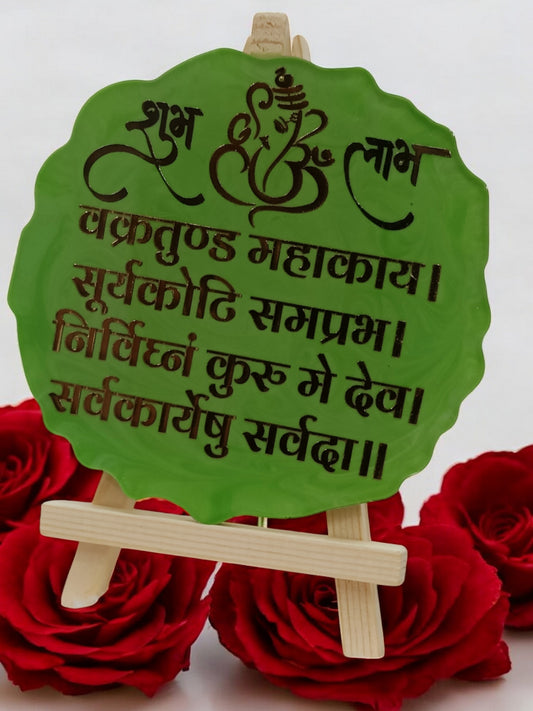 शुभ लाभ
वक्रतुण्ड महाकाय।
सूर्यकोटि समप्रभ।
निर्विघ्नं कुरु मे देव।
सर्वकार्येषु सर्वदा॥